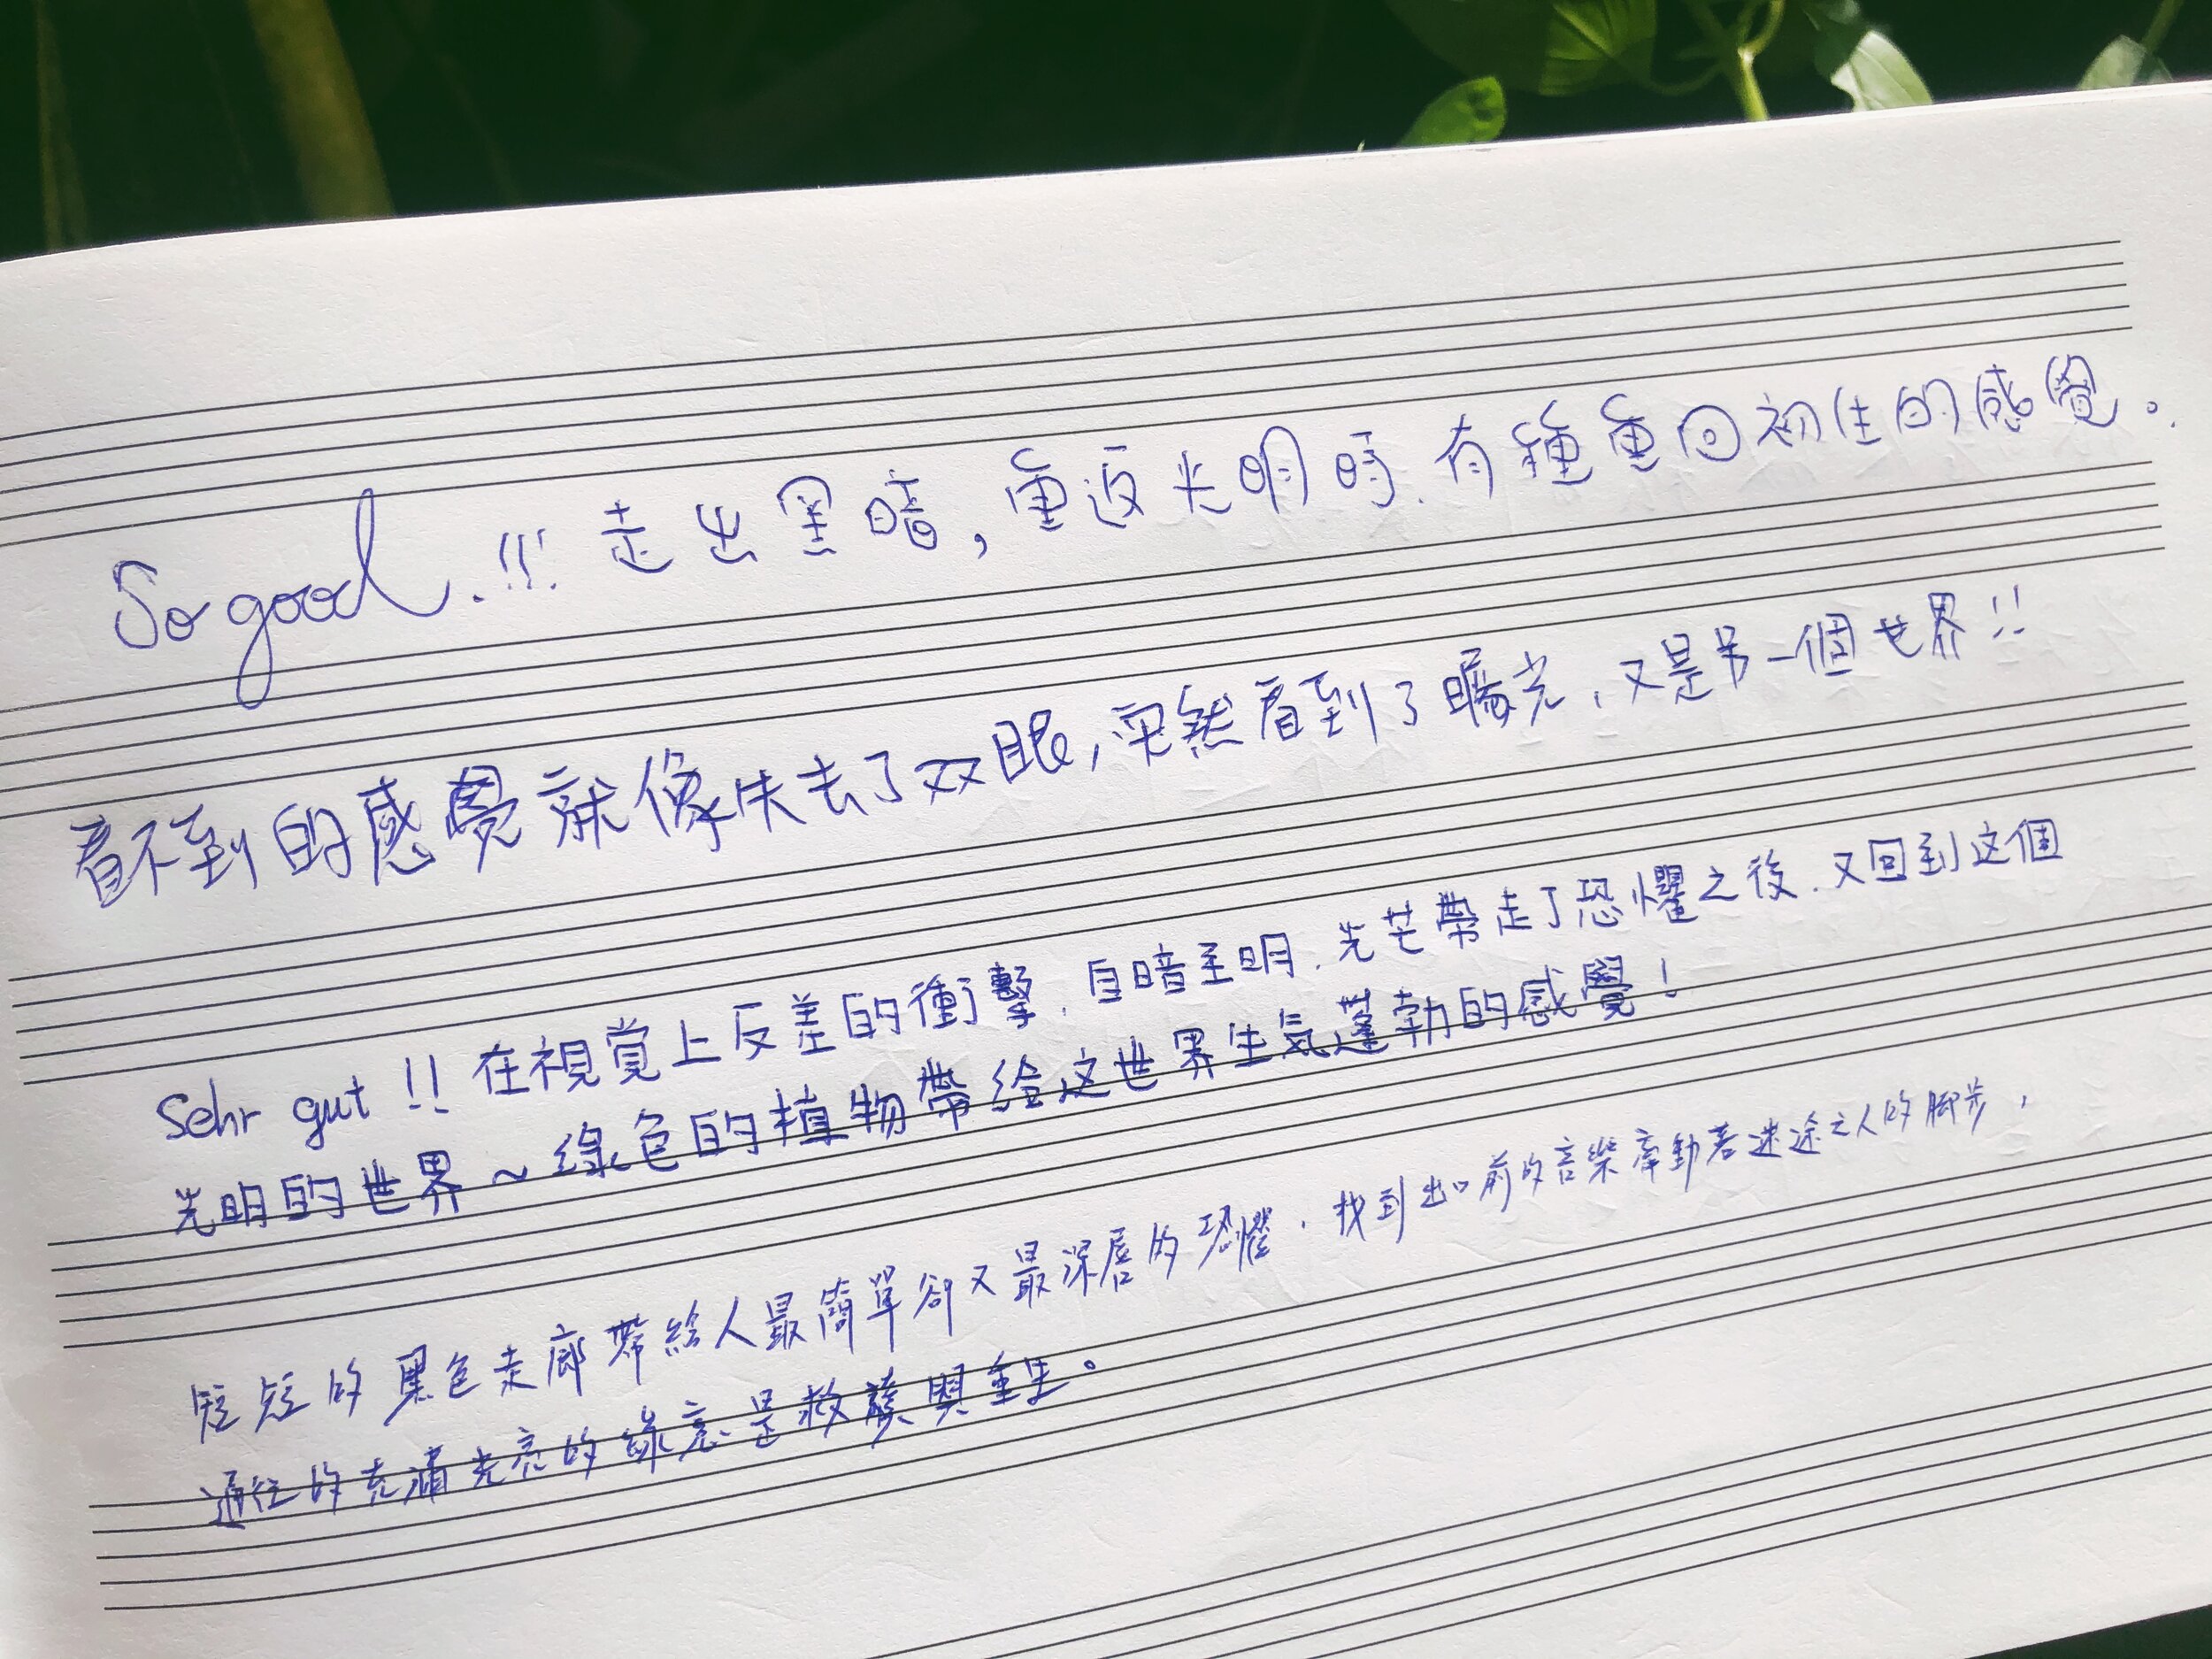 So good.!!! 走出黑暗，重返光明時.有種重回初生的感覺。
看不到的感覺就像失去了双眼，突然看到了曙光，又是另一個世界!!
Sehr gut !! 在視覚上反差的衝擊.自暗至明.光芒帶走了恐懼之後.又回到这個
光明的世界～綠色的植物帶給这世界生氣蓬勃的感覺！
短短的黑色走廊帶給人最簡單卻又最深層的恐懼，找到出口前的音樂牽動著迷途之人的腳步，
通往的充滿光亮的綠意是救贖與重生。